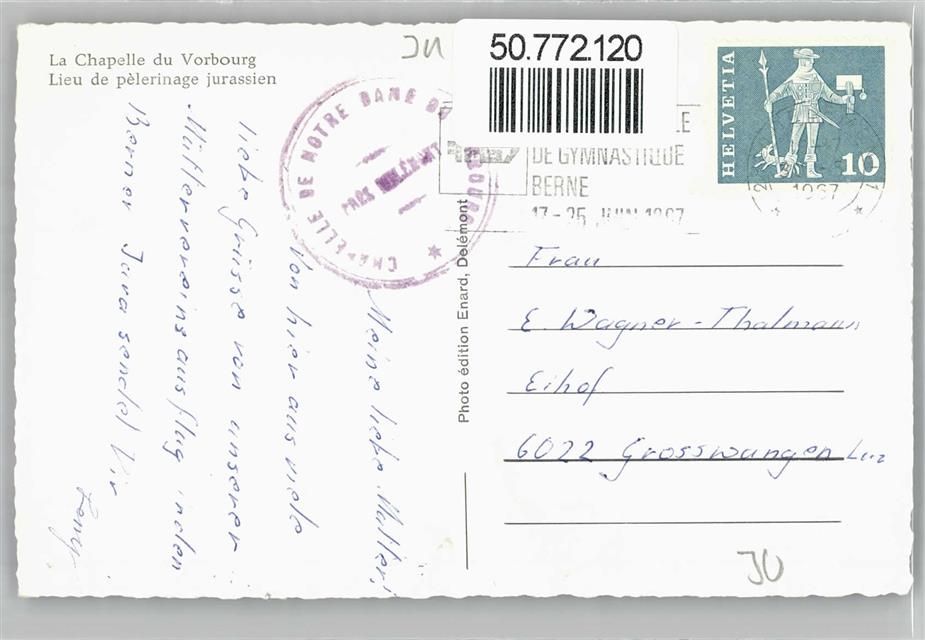 La Chapelle du Vorbourg
Lieu de pèlerinage jurassien
JU
50.772.120
CHAPELLE DE NOTRE DAME DU VORBOURG
PRÈS DELÉMONT
DE GYMNASTIQUE
BERNE
17-25 JUIN 1967
1967
HELVETIA
10
Meine liebe Mutter!
Von hier aus viele
liebe Grüsse von unserer
Müttervereinsausflug in den
Berner Jura sendet Dir
Photo édition Enard, Delémont
Frau
E. Wagner-Thalmann
Eihof
6022 Grosswangen Luz
JU